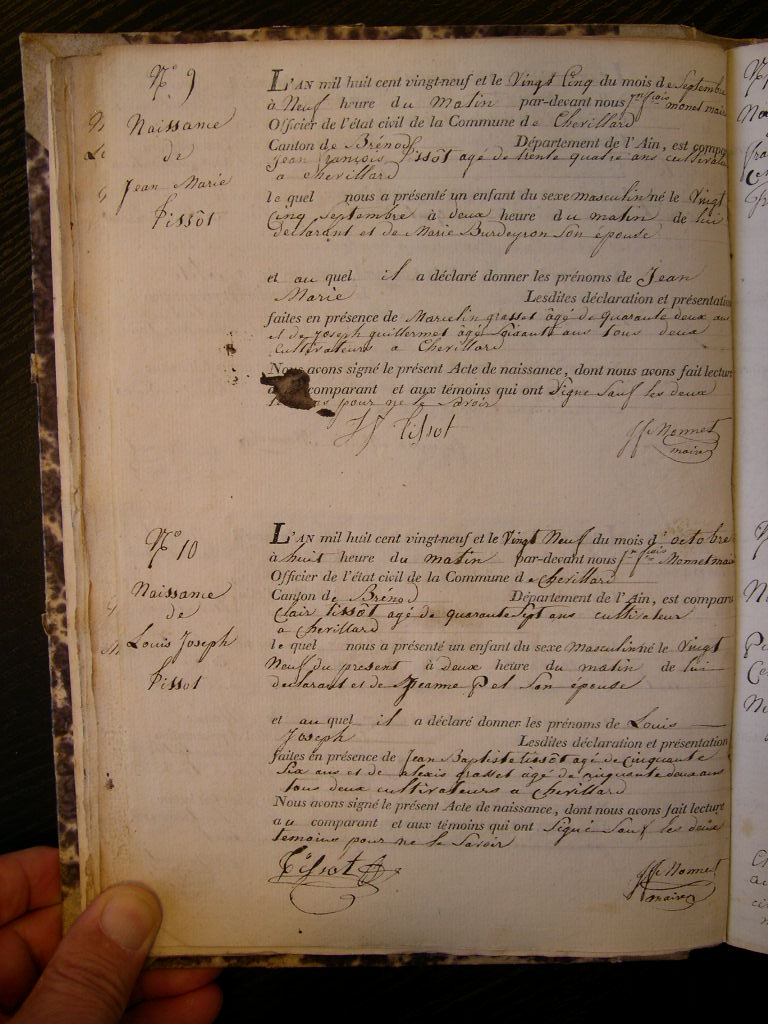 N° 9
Naissance
de
Jean Marie
Tissôt
L'AN mil huit cent vingt-neuf et le Vingt Cinq du mois de Septembre
à Neuf heure du Matin par-devant nous monet mai
Officier de l'état civil de la Commune de Chevillard
Canton de Brénod Département de l'Ain, est compa
Jean françois Tissôt agé de trente quatre ans cultivate
a chevillard
le quel nous a présenté un enfant du sexe masculin né le Vingt
Cinq Septembre à deux heure du matin de lui
declarant et de Marie Burdeyron Son épouse
et au quel il a déclaré donner les prénoms de Jean
Marie Lesdites déclaration et présentation
faites en présence de Marcelin grasset âgé de quarante deux ans
et de Joseph guillermet âgé Soixante ans tous deux
Cultivateurs a Chevillard
Nous avons signé le présent Acte de naissance, dont nous avons fait lecture
comparant et aux témoins qui ont Signé Sauf les deux
pour ne le Savoir
Tissot
Monnet
maire
N° 10
Naissance
de
Louis Joseph
Tissot
L'AN mil huit cent vingt-neuf et le Vingt Neuf du mois d'octobre
à huit heure du matin par-devant nous Monnet mai
Officier de l'état civil de la Commune de Chevillard
Canton de Brénod Département de l'Ain, est compar
Clair tissôt agé de quarante Sept ans cultivateur
a Chevillard
le quel nous a présenté un enfant du sexe Masculin né le Vingt
Neuf du present à deux heure du matin de lui
declarant et de Jeanne Son épouse
et au quel il a déclaré donner les prénoms de Louis
Joseph Lesdites déclaration et présentation
faites en présence de Jean Baptiste tissôt agé de cinquante
Six ans et de alexis grasset âgé de cinquante deux ans
tous deux cultivateurs a Chevillard
Nous avons signé le présent Acte de naissance, dont nous avons fait lecture
au comparant et aux témoins qui ont Signé Sauf les deux
temoins pour ne le Savoir
Tissot
Monnet
maire